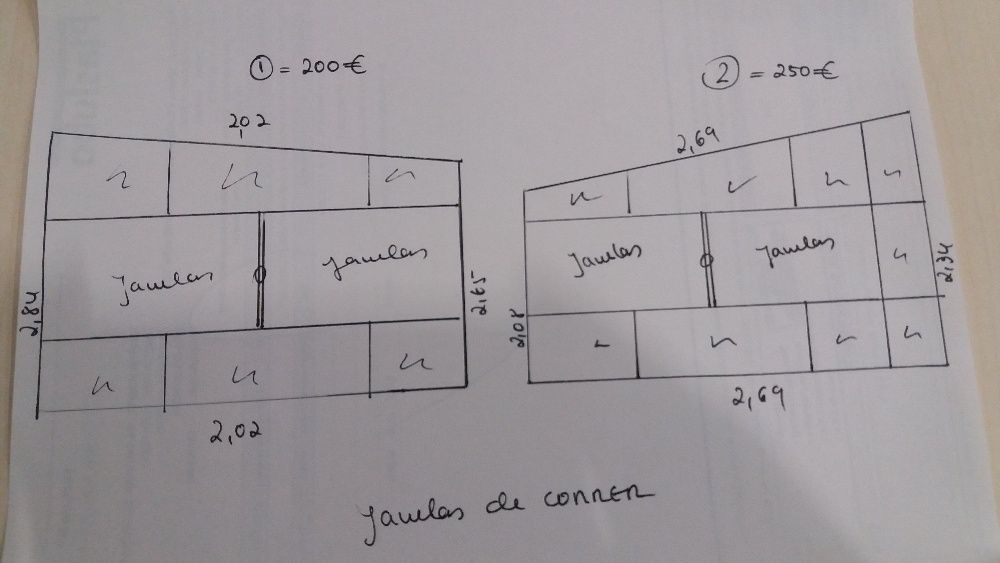 ① = 200€
② = 250€
2,02
2,69
Janelas
Janelas
Janelas
Janelas
2,84
2,65
2,08
2,34
2,02
2,69
Janelas de CORRER